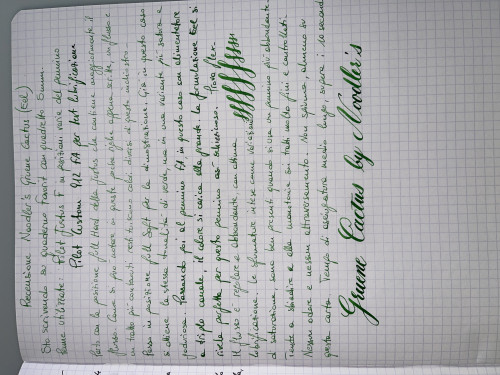 Recensione Noodler's Gruene Cactus (Eel)
Sto scrivendo su quaderno Favorit con quadretto 5mm
Penne utilizzate Pilot Justus F in posizioni varie del pennino
Pilot Custom 912 FA per test lubrificazione
Parto con la posizione full Hard della Justus che contiene maggiormente il
flusso. Come si può notare in queste poche righe appena scritte un flusso e
un tratto più contenuti restituiscono colori diversi di questo inchiostro
Passo in posizione full Soft per la dimostrazione. Già in questo caso
si ottiene la stessa tonalità di verde, ma in una variante più satura e
poderosa. Passando poi al pennino FA, in questo caso con alimentatore
a triplo canale, il colore si carica alla grande. La formulazione Eel si
rivela perfetta per questo pennino così schizzinoso. Prova flex
Il flusso è regolare e abbondante con ottima
lubrificazione. Le sfumature intese come variazioni
di saturazione sono ben presenti quando si usa un pennino più abbondante
Tende a sbiadire e alla monotonia su tratti molto fini e controllati.
Nessun odore e nessun attraversamento. Non spiuma, almeno su
questa carta. Tempo di asciugatura medio lungo, supera i secondi
Gruene Cactus by Noodler's